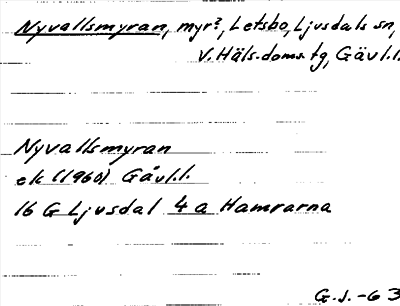 Nyvallsmyran, myr?, Letsbo, Ljusdals sn,
V. Häls. doms. tg, Gävl.l.
Nyvallsmyran
ek (1960) Gävl.l.
16 G Ljusdal 4 a Hamrarna
G.J. -63